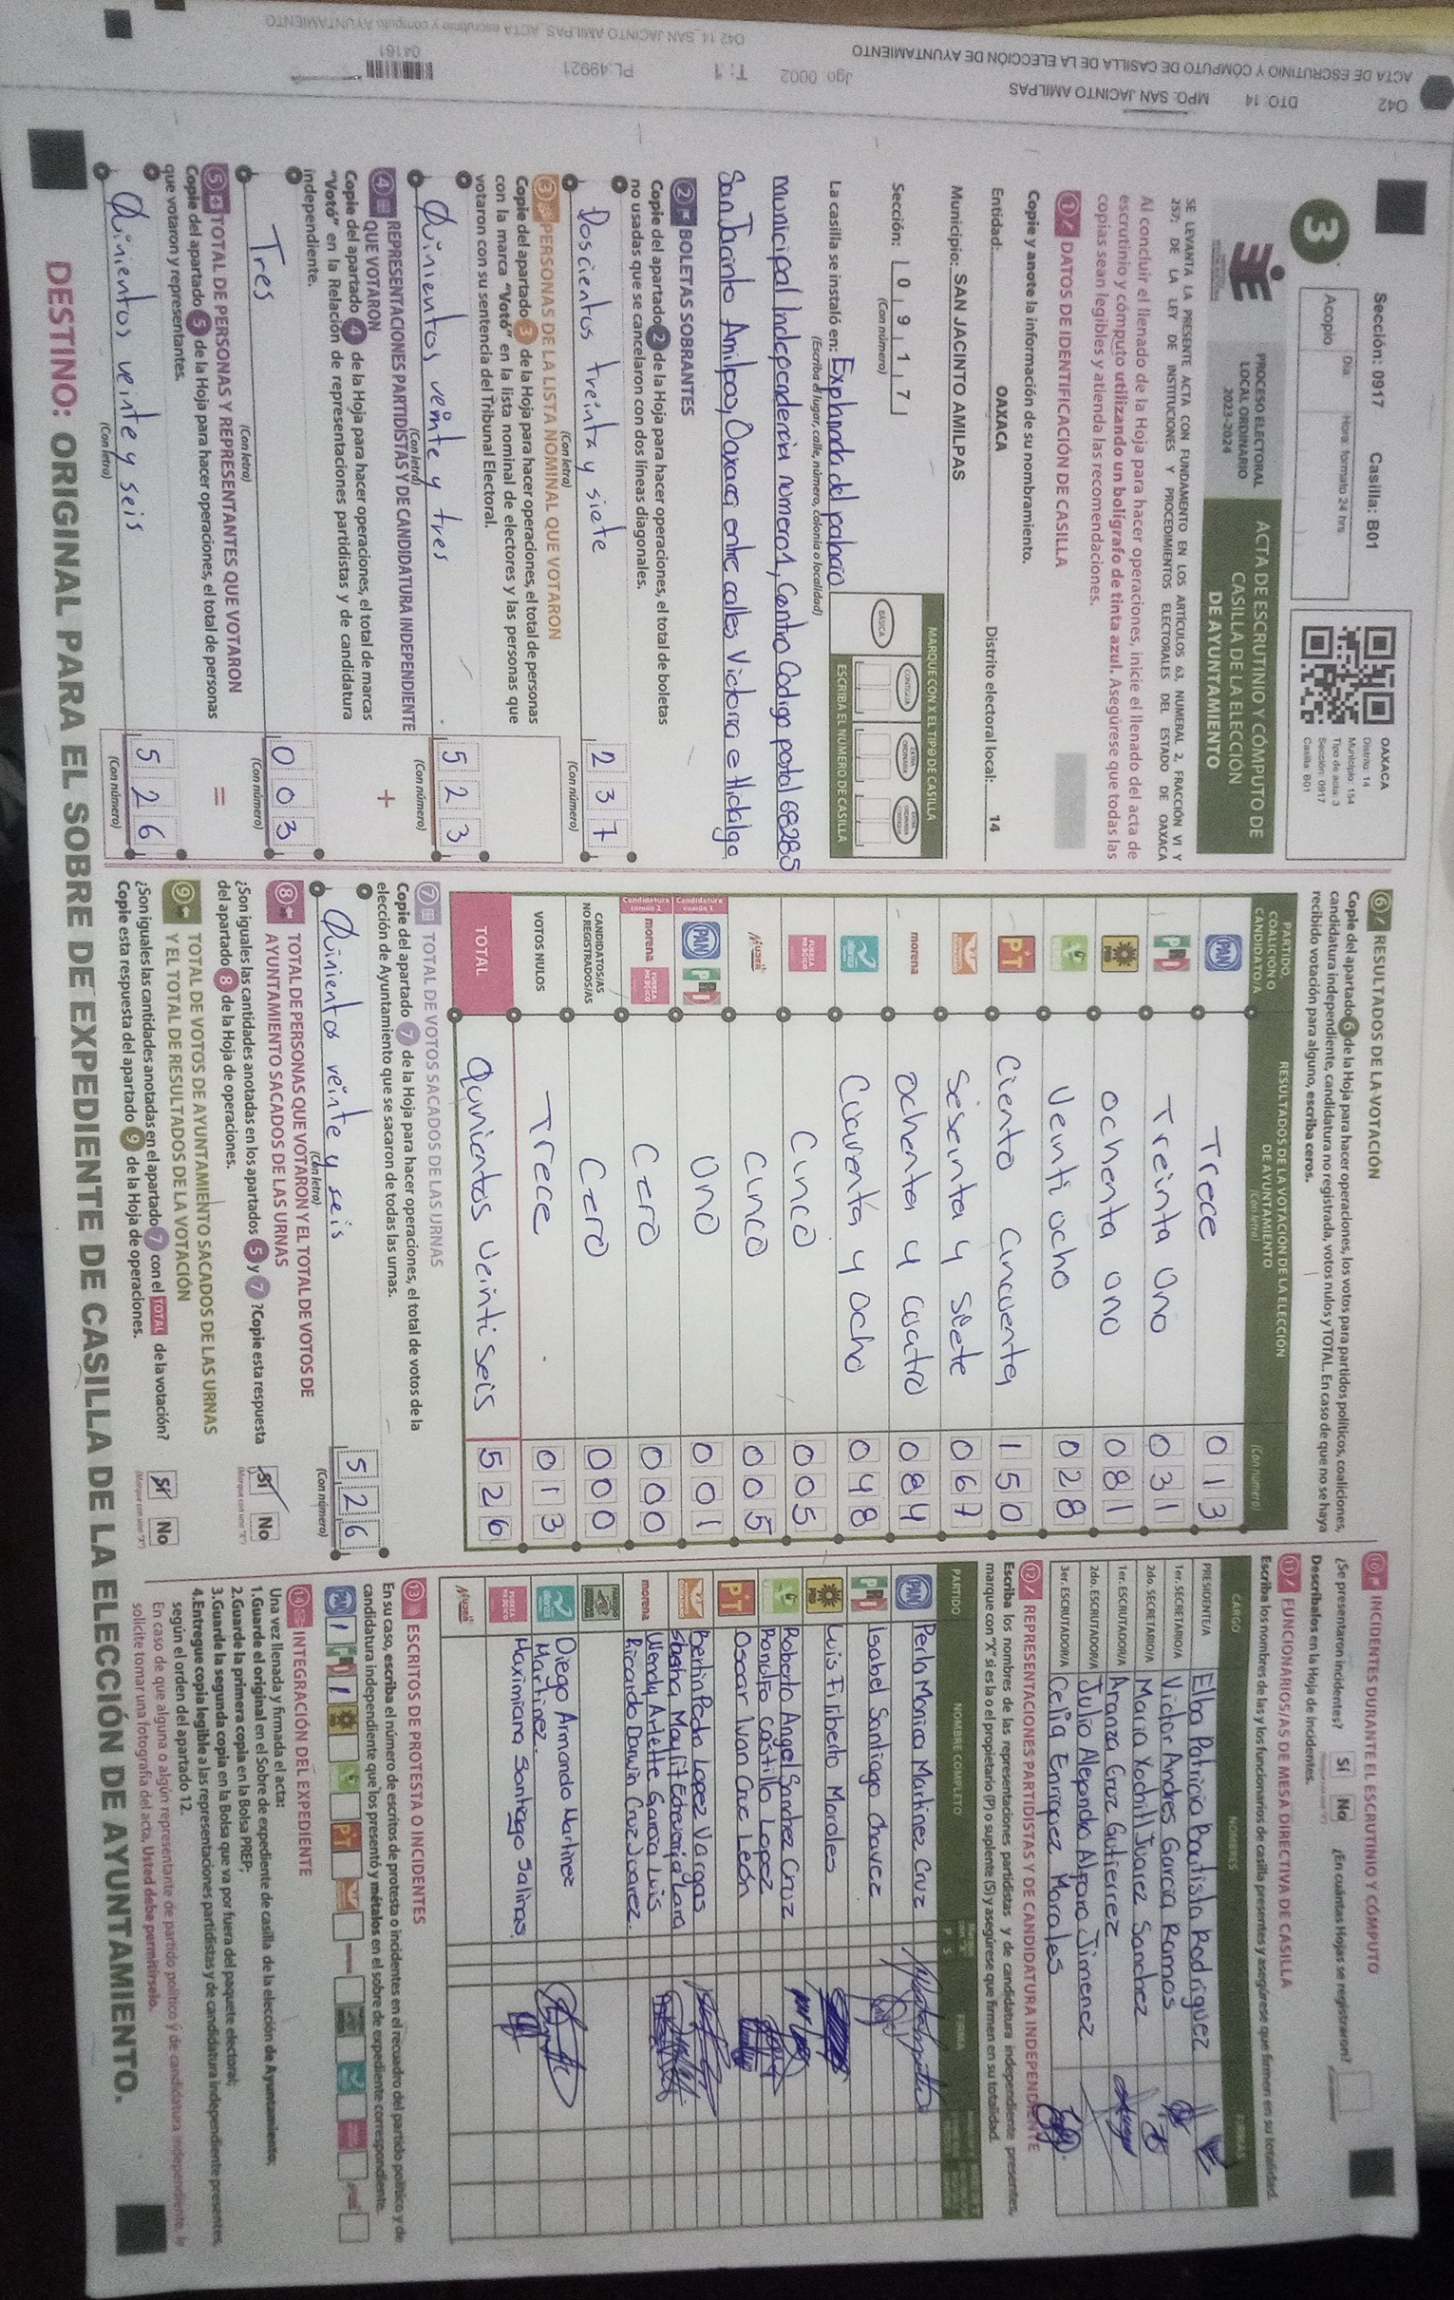 ACTA DE ESCRUTINIO Y CÓMPUTO DE CASILLA DE LA ELECCIÓN DE AYUNTAMIENTO
042 DTO. 14 MPO. SAN JACINTO AMILPAS
Jgo 0002 T: 1 PL:49921
04161
042 14 SAN JACINTO AMILPAS ACTA escrutinio y cómputo AYUNTAMIENTO
Sección: 0917 Casilla: B01
3
Día Hora: formato 24 hrs
Acopio
OAXACA
Distrito: 14
Municipio: 154
Tipo de acta: 3
Sección: 0917
Casilla: B01
PROCESO ELECTORAL
LOCAL ORDINARIO
2023-2024
ACTA DE ESCRUTINIO Y CÓMPUTO DE
CASILLA DE LA ELECCIÓN
DE AYUNTAMIENTO
SE LEVANTA LA PRESENTE ACTA CON FUNDAMENTO EN LOS ARTÍCULOS 63, NUMERAL 2, FRACCIÓN VI Y
257; DE LA LEY DE INSTITUCIONES Y PROCEDIMIENTOS ELECTORALES DEL ESTADO DE OAXACA
Al concluir el llenado de la Hoja para hacer operaciones, inicie el llenado del acta de
escrutinio y cómputo utilizando un bolígrafo de tinta azul. Asegúrese que todas las
copias sean legibles y atienda las recomendaciones.
1 DATOS DE IDENTIFICACIÓN DE CASILLA
Copie y anote la información de su nombramiento.
Entidad: OAXACA Distrito electoral local: 14
Municipio: SAN JACINTO AMILPAS
Sección: 0 9 1 7
(Con número)
MARQUE CON X EL TIPO DE CASILLA
BÁSICA CONTIGUA
ESCRIBA EL NÚMERO DE CASILLA
La casilla se instaló en: Explanada del palacio
(Escriba el lugar, calle, número, colonia o localidad)
municipal Independencia numero 1, Centro Codigo postal 68285
San Jacinto Amilpas, Oaxaca entre calles Victoria e Hidalgo
2 BOLETAS SOBRANTES
Copie del apartado 2 de la Hoja para hacer operaciones, el total de boletas
no usadas que se cancelaron con dos líneas diagonales.
Doscientos treinta y siete 2 3 7
(Con letra) (Con número)
3 PERSONAS DE LA LISTA NOMINAL QUE VOTARON
Copie del apartado 3 de la Hoja para hacer operaciones, el total de personas
con la marca "Votó" en la lista nominal de electores y las personas que
votaron con su sentencia del Tribunal Electoral.
Quinientos veinte y tres 5 2 3
(Con letra) (Con número)
4 REPRESENTACIONES PARTIDISTAS Y DE CANDIDATURA INDEPENDIENTE
QUE VOTARON +
Copie del apartado 4 de la Hoja para hacer operaciones, el total de marcas
"Votó" en la Relación de representaciones partidistas y de candidatura
independiente.
Tres 0 0 3
(Con letra) (Con número)
5 TOTAL DE PERSONAS Y REPRESENTANTES QUE VOTARON =
Copie del apartado 5 de la Hoja para hacer operaciones, el total de personas
que votaron y representantes.
Quinientos veinte y seis 5 2 6
(Con letra) (Con número)
6 RESULTADOS DE LA VOTACIÓN
Copie del apartado 6 de la Hoja para hacer operaciones, los votos para partidos políticos, coaliciones,
candidatura independiente, candidatura no registrada, votos nulos y TOTAL. En caso de que no se haya
recibido votación para alguno, escriba ceros.
PARTIDO, COALICIÓN O CANDIDATO/A
RESULTADOS DE LA VOTACIÓN DE LA ELECCIÓN DE AYUNTAMIENTO
(Con letra) (Con número)
PAN Trece 0 1 3
PRI Treinta Uno 0 3 1
PRD ochenta uno 0 8 1
Veinti ocho 0 2 8
PT Ciento cincuenta 1 5 0
Sesenta y siete 0 6 7
morena ochenta y cuatro 0 8 4
Cuarenta y ocho 0 4 8
FUERZA MÉXICO Cinco 0 0 5
Cinco 0 0 5
Candidatura común 1 PAN PRI Uno 0 0 1
Candidatura común 2 morena FUERZA MÉXICO Cero 0 0 0
CANDIDATOS/AS NO REGISTRADOS/AS Cero 0 0 0
VOTOS NULOS Trece 0 1 3
TOTAL Quinientos Veinti Seis 5 2 6
7 TOTAL DE VOTOS SACADOS DE LAS URNAS
Copie del apartado 7 de la Hoja para hacer operaciones, el total de votos de la
elección de Ayuntamiento que se sacaron de todas las urnas.
Quinientos veinte y seis 5 2 6
(Con letra) (Con número)
8 TOTAL DE PERSONAS QUE VOTARON Y EL TOTAL DE VOTOS DE
AYUNTAMIENTO SACADOS DE LAS URNAS
¿Son iguales las cantidades anotadas en los apartados 5 y 7 ? Copie esta respuesta
del apartado 8 de la Hoja de operaciones.
Sí No
9 TOTAL DE VOTOS DE AYUNTAMIENTO SACADOS DE LAS URNAS
Y EL TOTAL DE RESULTADOS DE LA VOTACIÓN
¿Son iguales las cantidades anotadas en el apartado 7 con el TOTAL de la votación?
Copie esta respuesta del apartado 9 de la Hoja de operaciones.
Sí No
10 INCIDENTES DURANTE EL ESCRUTINIO Y CÓMPUTO
¿Se presentaron incidentes? Sí No ¿En cuántas Hojas se registraron?
Descríbalos en la Hoja de Incidentes.
11 FUNCIONARIOS/AS DE MESA DIRECTIVA DE CASILLA
Escriba los nombres de las y los funcionarios de casilla presentes y asegúrese que firmen en su totalidad.
CARGO NOMBRES FIRMAS
PRESIDENTE/A Elba Patricia Bautista Rodriguez
1er. SECRETARIO/A Victor Andres Garcia Ramos
2do. SECRETARIO/A Maria Xochitl Juarez Sanchez
1er. ESCRUTADOR/A Aranza Cruz Gutierrez
2do. ESCRUTADOR/A Julio Alejandro Alfaro Jimenez
3er. ESCRUTADOR/A Celia Enriquez Morales
12 REPRESENTACIONES PARTIDISTAS Y DE CANDIDATURA INDEPENDIENTE
Escriba los nombres de las representaciones partidistas y de candidatura independiente presentes,
marque con "X" si es la o el propietario (P) o suplente (S) y asegúrese que firmen en su totalidad.
PARTIDO NOMBRE COMPLETO P S FIRMA
PAN Perla Monica Martinez Cruz
PRI Isabel Santiago Chavez
PRD Luis Filiberto Morales
Roberto Angel Sanchez Cruz
Ranulfo castillo Lopez
PT Oscar Ivan Cruz León
Bertin Pedro Lopez Vargas
Wendy Arlette Garcia Luis
morena Ricardo Darwin Cruz Juarez
Diego Armando Martinez
Martinez.
FUERZA MÉXICO Maximiana Santiago Salinas
13 ESCRITOS DE PROTESTA O INCIDENTES
En su caso, escriba el número de escritos de protesta o incidentes en el recuadro del partido político y de
candidatura independiente que los presentó y métalos en el sobre de expediente correspondiente.
PAN 1 PRI 1 PRD PT
14 INTEGRACIÓN DEL EXPEDIENTE
Una vez llenada y firmada el acta:
1.Guarde el original en el Sobre de expediente de casilla de la elección de Ayuntamiento;
2.Guarde la primera copia en la Bolsa PREP;
3.Guarde la segunda copia en la Bolsa que va por fuera del paquete electoral;
4.Entregue copia legible a las representaciones partidistas y de candidatura independiente presentes,
según el orden del apartado 12.
En caso de que alguna o algún representante de partido político y de candidatura independiente, le
solicite tomar una fotografía del acta, Usted debe permitírselo.
DESTINO: ORIGINAL PARA EL SOBRE DE EXPEDIENTE DE CASILLA DE LA ELECCIÓN DE AYUNTAMIENTO.